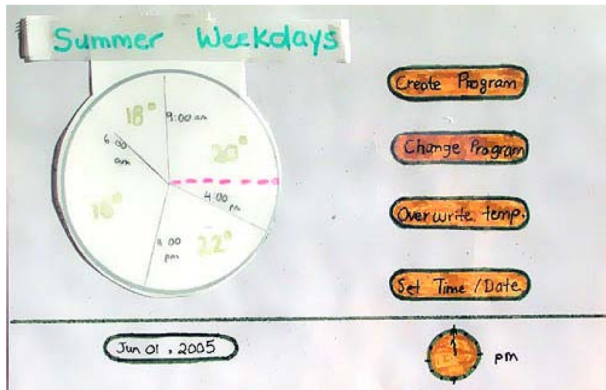 Summer Weekdays
18°
9:00 am
6:00
am
20°
4:00
pm
16°
8:00
pm
22°
Create Program
Change Program
Overwrite temp.
Set Time/Date
Jun 01, 2005
pm